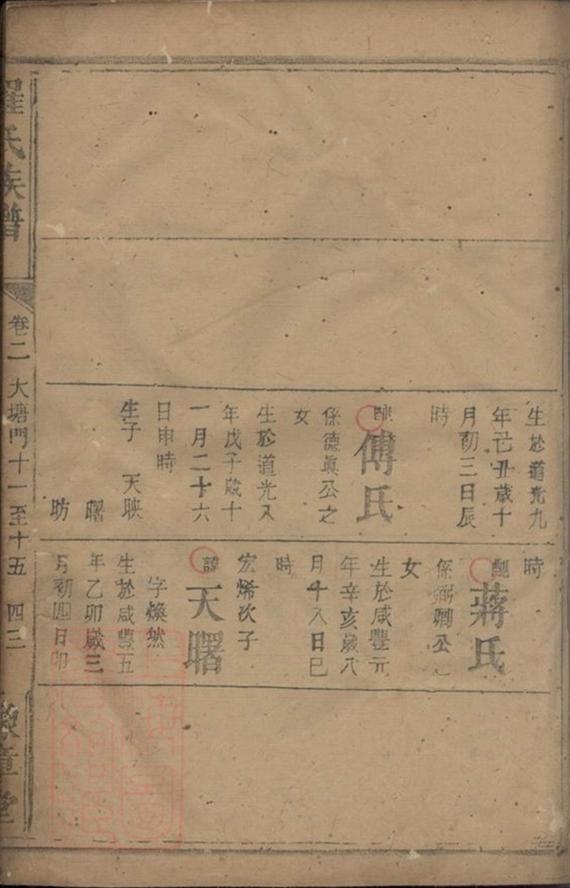 生於道光九
年己丑歲十
月初三日辰
時
配傅氏
係德眞公之
女
生於道光八
年戊子歲十
一月二十六
日申時
生子 天映
曙
昉
時
配蔣氏
係 卿公
女
生於咸豐元
年辛亥歲八
月十八日巳
時
宏烯次子
諱天曙
字煥然
生於咸豐五
年乙卯歲三
月初四日卯
氏族譜
卷二 大塘門十一至十五 四三
章堂